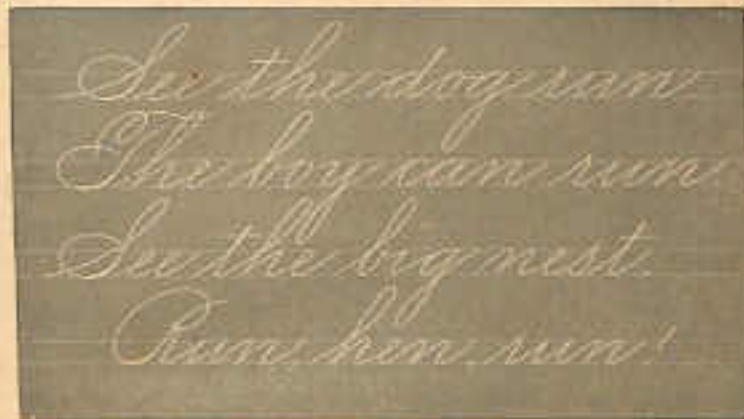 See the dog run
The boy can run.
See the big nest.
Run, hen, run!